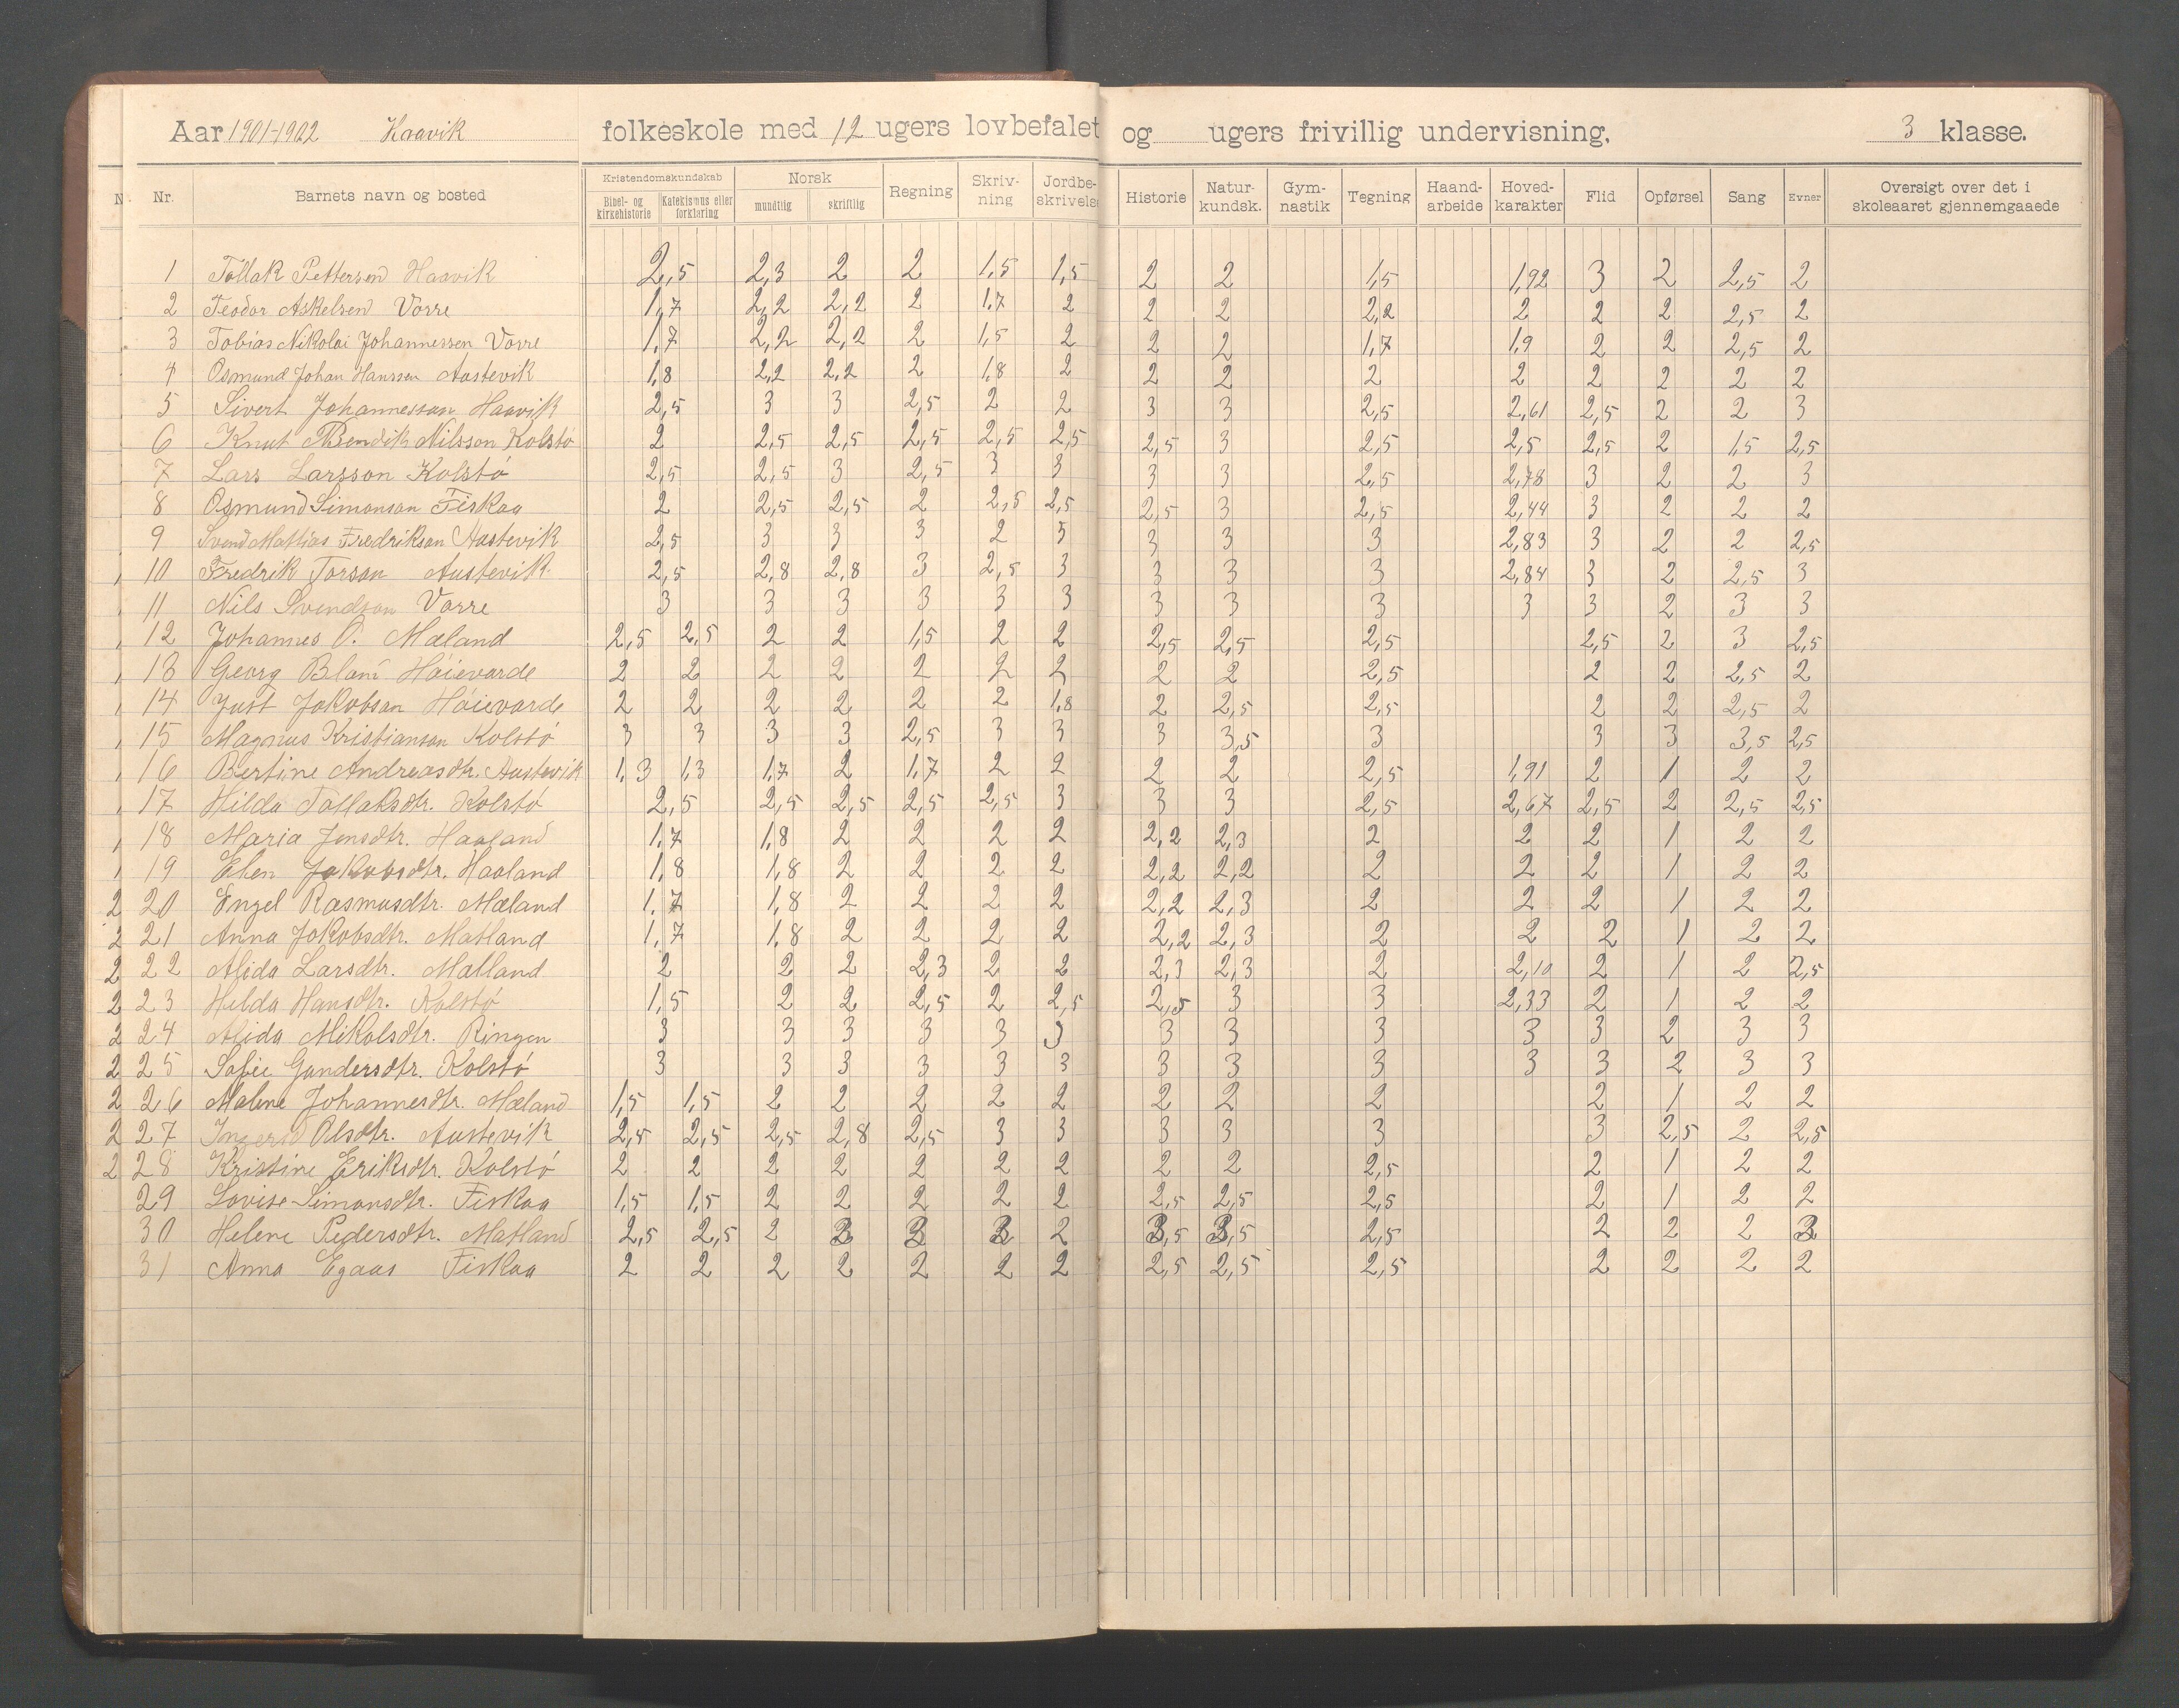 Aar 1901-1902 Haavik folkeskole med 12 ugers lovbefalet og ugers frivillig undervisning, 3 klasse.
Nr. Barnets navn og bosted Kristendomskundskab Bibel- og kirkehistorie Katekismus eller forklaring Norsk mundtlig skriftlig Regning Skriv-ning Jordbe-skrivelse Historie Natur-kundsk. Gym-nastik Tegning Haand-arbeide Hoved-karakter Flid Opførsel Sang Evner Oversigt over det i skoleaaret gjennemgaaede
1 Tollak Pettersen Haavik 2,5 2,3 2 2 1,5 1,5 2 2 1,5 1,92 3 2 2,5 2
2 Teodor Askelsen Vorre 1,7 2,2 2,2 2 1,7 2 2 2 2,2 2 2 2 2,5 2
3 Tobias Nikolai Johannessen Vorre 1,7 2,2 2,2 2 1,5 2 2 2 1,7 1,9 2 2 2,5 2
4 Osmund Johan Hanssen Austevik 1,8 2,2 2,2 2 1,8 2 2 2 2 2 2 2 2 2
5 Sivert Johannesson Haavik 2,5 3 3 2,5 2 2 3 3 2,5 2,61 2,5 2 2 3
6 Knut Bendik Nilsson Kolstó 2 2,5 2,5 2,5 2,5 2,5 2,5 3 2,5 2,5 2,5 2 1,5 2,5
7 Lars Larsson Kolstó 2,5 2,5 3 2,5 3 3 3 3 2,5 2,78 3 2 2 3
8 Osmund Simonson Fiskaa 2 2,5 2,5 2 2,5 2,5 2,5 3 2,5 2,44 3 2 2 2
9 Svend Mattias Fredrikson Austevik 2,5 3 3 3 2 3 3 3 3 2,83 3 2 2 2,5
10 Fredrik Torson Austevik 2,5 2,8 2,8 3 2,5 3 3 3 3 2,84 3 2 2,5 3
11 Nils Svendson Vorre 3 3 3 3 3 3 3 3 3 3 3 2 3 3
12 Johannes O. Mæland 2,5 2,5 2 2 1,5 2 2 2,5 2,5 2,5 2,5 2 3 2,5
13 Georg Høievarde 2 2 2 2 2 2 2 2 2 2,5 2 2 2,5 2
14 Just Jakobson Høievarde 2 2 2 2 2 2 1,8 2 2,5 2,5 2 2 2,5 2
15 Magnus Kristianson Kolstó 3 3 3 3 2,5 3 3 3 3,5 3 3 3 3,5 2,5
16 Bertine Andreasdtr. Austevik 1,3 1,3 1,7 2 1,7 2 2 2 2 2,5 1,91 2 1 2 2
17 Hilda Tollaksdtr. Kolstó 2,5 2,5 2,5 2,5 2,5 3 3 3 2,5 2,67 2,5 2 2,5 2,5
18 Maria Jensdtr. Haaland 1,7 1,8 2 2 2 2 2,2 2,3 2 2 2 1 2 2
19 Elen Jakobsdtr. Haaland 1,8 1,8 2 2 2 2 2,2 2,2 2 2 2 1 2 2
2 20 Engel Rasmusdtr. Mæland 1,7 1,8 2 2 2 2 2,2 2,3 2 2 2 1 2 2
2 21 Anna Jakobsdtr. Matland 1,7 1,8 2 2 2 2 2,2 2,3 2 2 2 1 2 2
2 22 Alida Larsdtr. Matland 2 2 2 2,3 2 2 2,3 2,3 2 2,10 2 1 2 2,5
2 23 Hilda Hansdtr. Kolstó 1,5 2 2 2,5 2 2,5 2,5 3 3 2,33 2 1 2 2
2 24 Alida Mikalsdtr. Ringen 3 3 3 3 3 3 3 3 3 3 3 2 3 3
2 25 Sofie Gundersdtr. Kolstó 3 3 3 3 3 3 3 3 3 3 3 2 3 3
2 26 Malene Johannesdtr. Mæland 1,5 1,5 2 2 2 2 2 2 2 2 2 1 2 2
2 27 Ingerid Olsdtr. Austevik 2,5 2,5 2,5 2,8 2,5 3 3 3 3 3 3 2,5 2 2,5
2 28 Kristine Eriksdtr. Kolstó 2 2 2 2 2 2 2 2 2 2,5 2 1 2 2
29 Lovise Simonsdtr. Fiskaa 1,5 1,5 2 2 2 2 2 2,5 2,5 2,5 2 1 2 2
30 Helene Pedersdtr. Matland 2,5 2,5 2 2 2,5 2 2 2
31 Anna Egaas Fiskaa 2 2 2 2 2 2 2 2,5 2,5 2,5 2 2 2 2